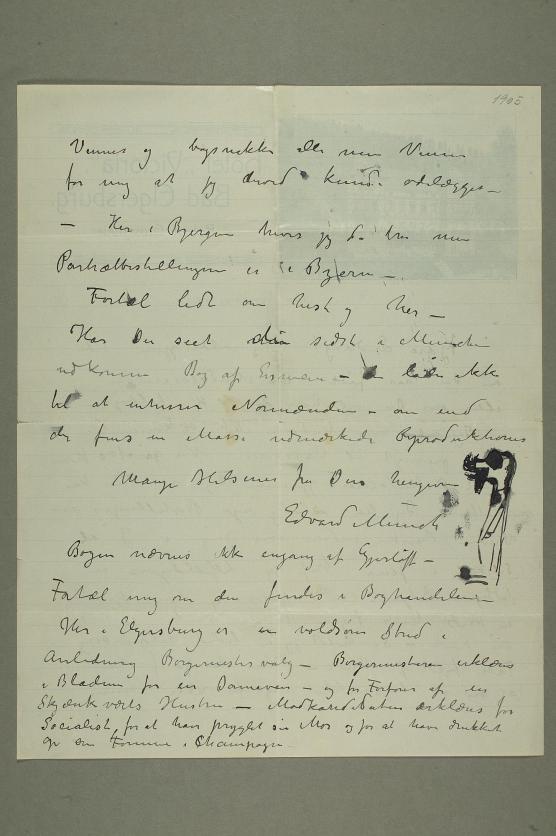 1905
Venner og alle mine Venner
for mig at jeg kunde ødelægges –
– Her i Bjergene hvis jeg da har min
Portrætbestillingen er i Byerne –
Fortæl lidt om hist og her –
Har De seet den sidst i München
udkomne Bog af – De lader ikke
til at interessere Nordmændene – om end
der fins en Masse udmærkede Reproduktioner
Mange Hilsener fra Deres hengivne
Edvard Munch
Bogen nævnes ikke engang af Gjerløff –
Fortæl mig om den findes i Boghandelen –
Her i Elgersburg er en voldsom Strid i
Anledning Borgermestervalg – Borgermesteren erklæres
i Bladene for en – og for Forfører af en
Skjænkværts Hustru – Modkandidaten erklæres for
Socialist, for at have pryglet sin Mor og for at have drukket
op sin Formue i Champagne
Hotel Victoria
Bad Elgersburg